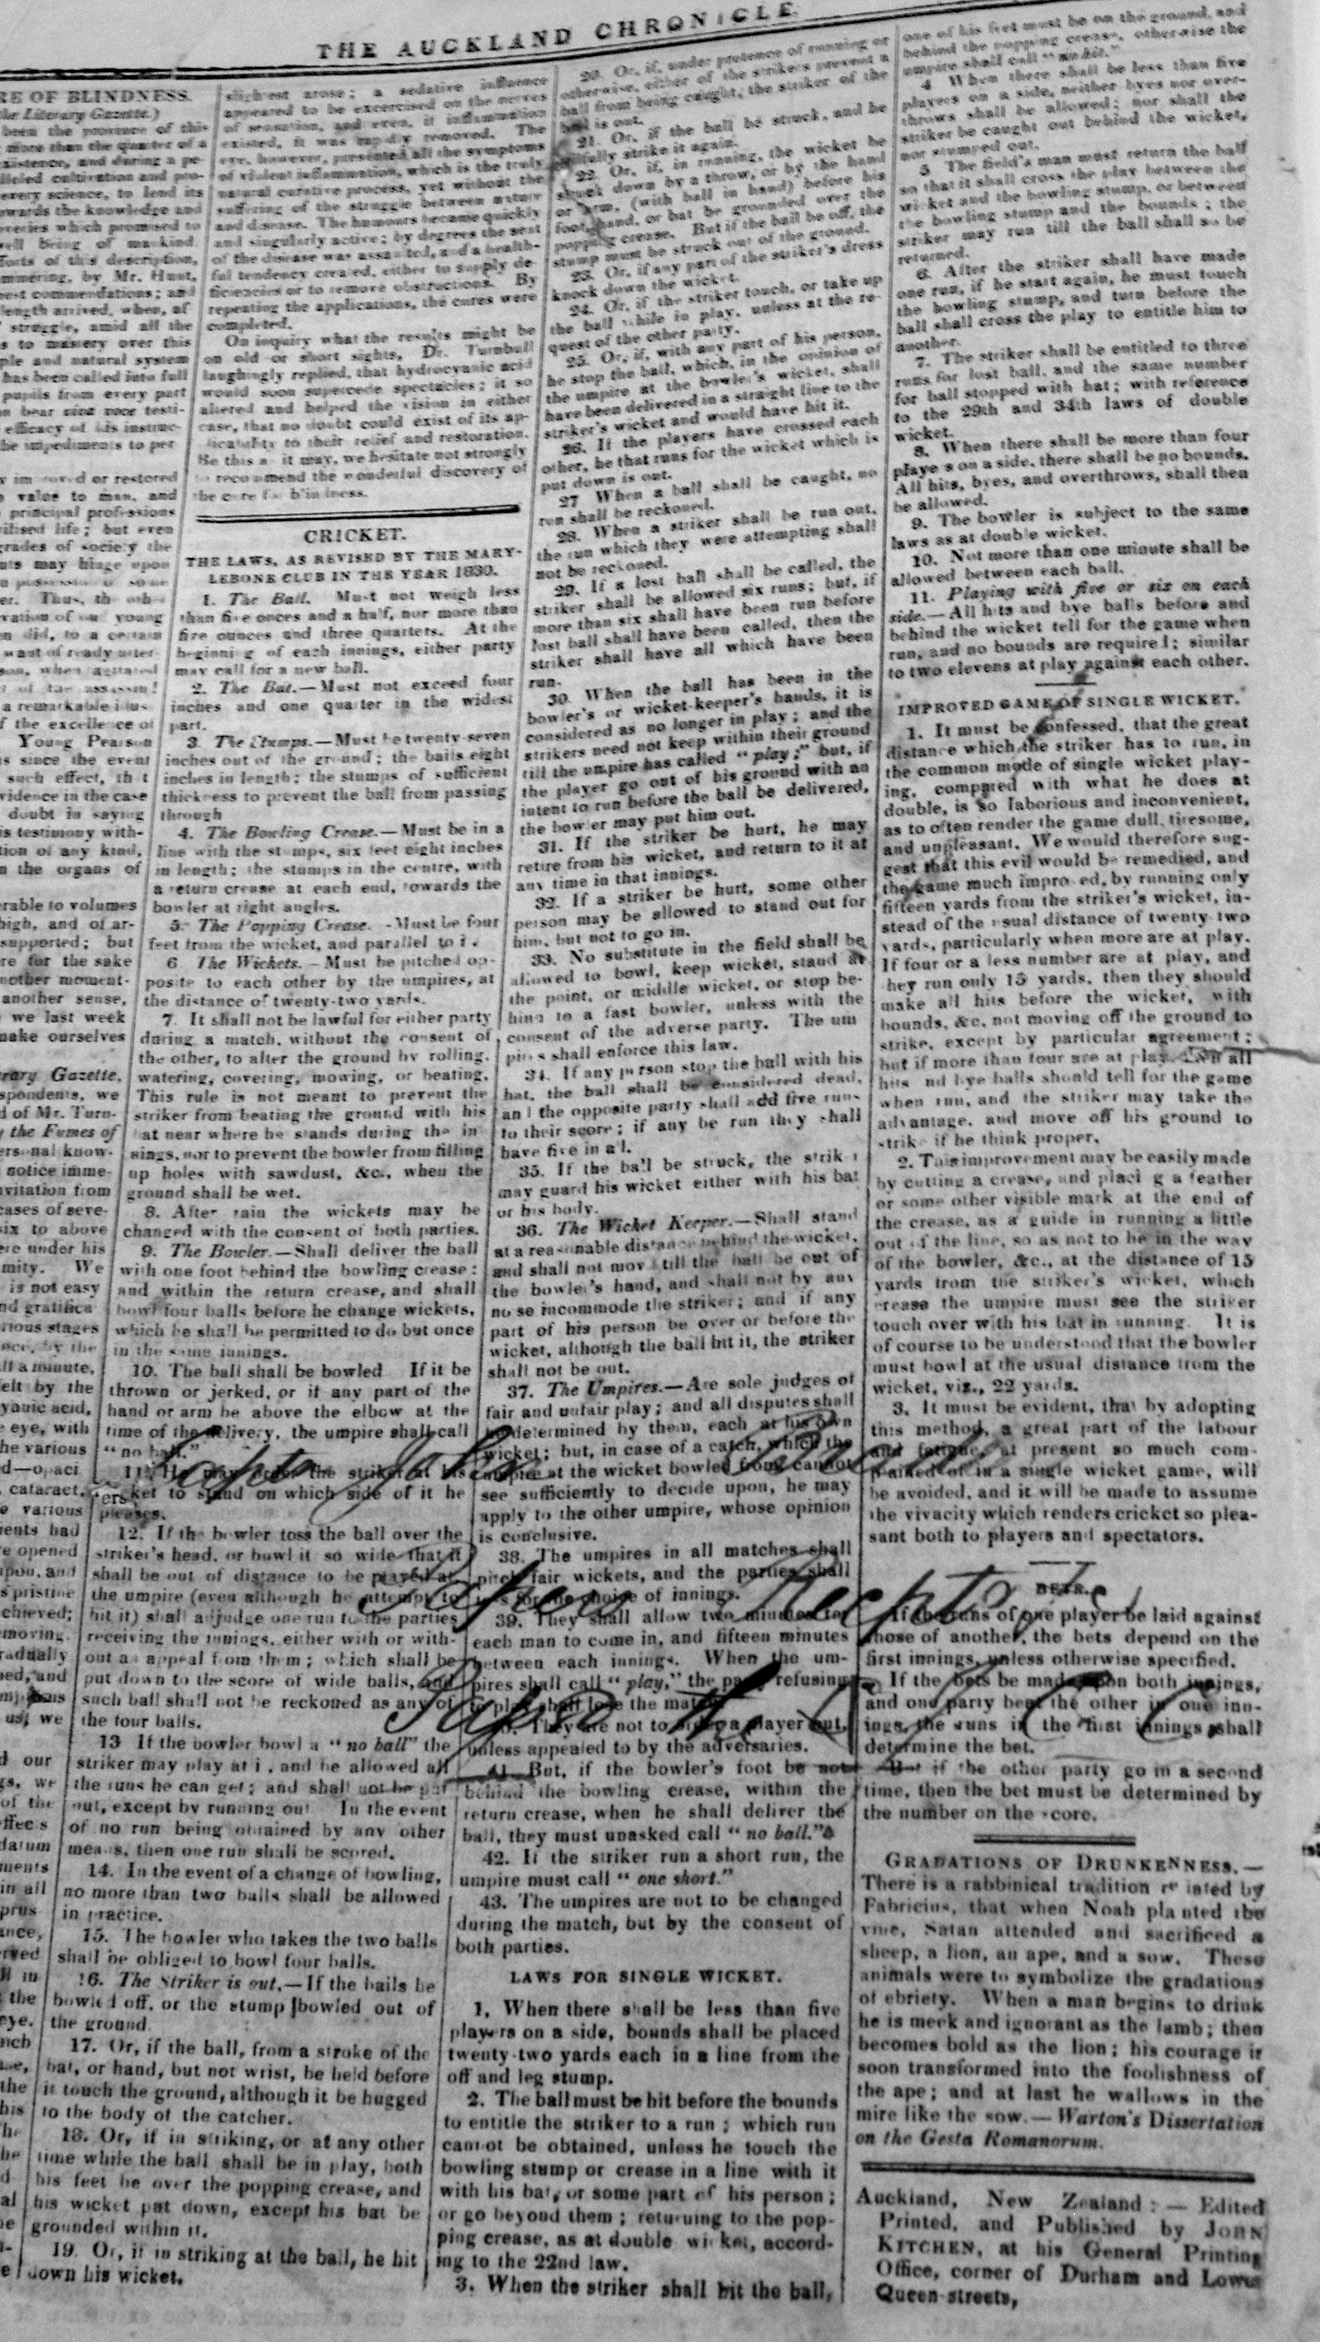 THE AUCKLAND CHRONICLE
RE OF BLINDNESS.
the Literary Gazette.)
been the province of this
more than the quarter of a
existence, and during a pe-
erary science, to lend its
owards the knowledge and
veries which promised to
well being of mankind.
forts of this description,
mmering, by Mr. Hunt,
est commendations; and
length arrived, when, af
struggle, amid all the
s to mastery over this
ple and natural system
has been called into full
pupils from every part
n bear viva voce testi-
efficacy of his instruc-
he impediments to per
or restored
value to man, and
principal professions
ilised life; but even
grades of society the
nts may hinge upon
young
en did, to a certain
want of ready utter-
son, when agitated
of the assassin!
a remarkable illus-
f the excellence of
Young Pearson
s since the event
such effect, that
vidence in the case
doubt in saying
is testimony with-
tion of any kind,
n the organs of
rable to volumes
high, and of ar-
supported; but
re for the sake
nother moment-
another sense,
we last week
make ourselves
rary Gazette.
spondents, we
d of Mr. Turn-
y the Fumes of
ersonal know-
notice imme-
nvitation from
cases of seve-
six to above
ere under his
mity. We
is not easy
nd gratifica
rious stages
ll a minute,
elt by the
yanic acid,
e eye, with
he various
d—opaci
cataract,
e various
ients had
e opened
upon, and
s pristine
chieved;
emoving.
radually
ped, and
us, we
d our
gs, we
of the
ffecs
datum
ments
in all
prus
slightest arose; a sedative influence
appeared to be excercised on the nerves
of sensation, and even, if inflammation
existed, it was rapidly removed. The
eye, however, presented all the symptoms
of violent inflammation, which is the truly
natural curative process, yet without the
suffering of the struggle between nature
and disease. The humours became quickly
and singularly active; by degrees the seat
of the disease was assaulted, and a health-
ful tendency created, either to supply de-
ficiencies or to remove obstructions. By
repeating the applications, the cures were
completed.
On inquiry what the results might be
on old or short sights, Dr. Turnbull
laughingly replied, that hydrocyanic acid
would soon supercede spectacles; it so
altered and helped the vision in either
case, that no doubt could exist of its ap-
plicability to their relief and restoration.
Be this as it may, we hesitate not strongly
to recommend the wonderful discovery of
the cure for blindness.
CRICKET.
THE LAWS, AS REVISED BY THE MARY-
LEBONE CLUB IN THE YEAR 1830.
1. The Ball. Must not weigh less
than five onces and a half, nor more than
fire ounces and three quarters. At the
beginning of each innings, either party
may call for a new ball.
2. The Bat.—Must not exceed four
inches and one quarter in the widest
part.
3. The Stumps.—Must be twenty-seven
inches out of the ground; the bails eight
inches in length; the stumps of sufficient
thickness to prevent the ball from passing
through
4. The Bowling Crease.—Must be in a
line with the stumps, six feet eight inches
in length; the stumps in the centre, with
a return crease at each end, towards the
bowler at right angles.
5. The Popping Crease. -Must be four
feet from the wicket, and parallel to i.
6 The Wickets.—Must be pitched op-
posite to each other by the umpires, at
the distance of twenty-two yards.
7. It shall not be lawful for either party
during a match, without the consent of
the other, to alter the ground by rolling.
watering, covering, mowing, or beating.
This rule is not meant to prevent the
striker from beating the ground with his
bat near where he stands during the in
nings, nor to prevent the bowler from filling
up holes with sawdust, &c., when the
ground shall be wet.
8. After rain the wickets may be
changed with the consent of both parties.
9. The Bowler.—Shall deliver the ball
with one foot behind the bowling crease;
and within the return crease, and shall
bowl four balls before he change wickets,
which he shall be permitted to do but once
in the same innings.
10. The ball shall be bowled If it be
thrown or jerked, or if any part of the
hand or arm be above the elbow at the
time of the delivery, the umpire shall call
"no ball."
11. He may order the striker at his
wicket to stand on which side of it he
pleases.
12. If the bowler toss the ball over the
striker's head, or bowl it so wide that it
shall be out of distance to be played at
the umpire (even although he attempt to
hit it) shall adjudge one run to the parties
receiving the innings, either with or with-
out an appeal from them; which shall be
put down to the score of wide balls, and
such ball shall not be reckoned as any of
the four balls.
13 If the bowler bowl a "no ball" the
striker may play at i, and be allowed all
the runs he can get; and shall not be put
out, except by running out In the event
of no run being obtained by any other
means, then one run shall be scored.
14. In the event of a change of bowling,
no more than two balls shall be allowed
in practice.
15. The bowler who takes the two balls
shall be obliged to bowl four balls.
16. The Striker is out,—If the bails be
bowled off, or the stump bowled out of
the ground.
17. Or, if the ball, from a stroke of the
bat, or hand, but not wrist, be held before
it touch the ground, although it be hugged
to the body of the catcher.
18. Or, if in striking, or at any other
time while the ball shall be in play, both
his feet be over the popping crease, and
his wicket put down, except his bat be
grounded within it.
19. Or, if in striking at the ball, he hit
down his wicket.
20. Or, if, under pretence of running or
otherwise, either of the strikers prevent a
ball from being caught, the striker of the
ball is out.
21. Or, if the ball be struck, and he
wilfully strike it again.
22. Or, if, in running, the wicket be
struck down by a throw, or by the hand
or arm, (with ball in hand) before his
foot, hand, or bat be grounded over the
popping crease. But if the bail be off, the
stump must be struck out of the ground.
23. Or, if any part of the striker's dress
knock down the wicket.
24. Or, if the striker touch, or take up
the ball while in play, unless at the re-
quest of the other party.
25. Or, if, with any part of his person,
he stop the ball, which, in the opinion of
the umpire at the bowler's wicket, shall
have been delivered in a straight line to the
striker's wicket and would have hit it.
26. If the players have crossed each
other, he that runs for the wicket which is
put down is out.
27 When a ball shall be caught, no
run shall be reckoned.
28. When a striker shall be run out,
the run which they were attempting shall
not be reckoned.
29. If a lost ball shall be called, the
striker shall be allowed six runs; but, if
more than six shall have been run before
lost ball shall have been called, then the
striker shall have all which have been
run.
30. When the ball has been in the
bowler's or wicket-keeper's hands, it is
considered as no longer in play; and the
strikers need not keep within their ground
till the umpire has called "play;" but, if
the player go out of his ground with an
intent to run before the ball be delivered,
the bowler may put him out.
31. If the striker be hurt, he may
retire from his wicket, and return to it at
any time in that innings.
32. If a striker be hurt, some other
person may be allowed to stand out for
him, but not to go in.
33. No substitute in the field shall be
allowed to bowl, keep wicket, stand at
the point, or middle wicket, or stop be-
hind to a fast bowler, unless with the
consent of the adverse party. The um
pires shall enforce this law.
34. If any person stop the ball with his
hat, the ball shall be considered dead,
and the opposite party shall add five runs
to their score; if any be run they shall
have five in all.
35. If the ball be struck, the striker
may guard his wicket either with his bat
or his body.
36. The Wicket Keeper.—Shall stand
at a reasonable distance behind the wicket,
and shall not move till the ball be out of
the bowler's hand, and shall not by any
noise incommode the striker; and if any
part of his person be over or before the
wicket, although the ball hit it, the striker
shall not be out.
37. The Umpires.—Are sole judges of
fair and unfair play; and all disputes shall
be determined by them, each at his own
wicket; but, in case of a catch, which the
umpire at the wicket bowled from cannot
see sufficiently to decide upon, he may
apply to the other umpire, whose opinion
is conclusive.
38. The umpires in all matches shall
pitch fair wickets, and the parties shall
toss for the choice of innings.
39. They shall allow two minutes for
each man to come in, and fifteen minutes
between each innings. When the um-
pires shall call "play," the party refusing
to play shall lose the match.
40. They are not to order a player out,
unless appealed to by the adversaries.
41. But, if the bowler's foot be not
behind the bowling crease, within the
return crease, when he shall deliver the
ball, they must unasked call "no ball."
42. If the striker run a short run, the
umpire must call "one short."
43. The umpires are not to be changed
during the match, but by the consent of
both parties.
LAWS FOR SINGLE WICKET.
1, When there shall be less than five
players on a side, bounds shall be placed
twenty-two yards each in a line from the
off and leg stump.
2. The ball must be hit before the bounds
to entitle the striker to a run; which run
cannot be obtained, unless he touch the
bowling stump or crease in a line with it
with his bat, or some part of his person;
or go beyond them; returning to the pop-
ping crease, as at double wicket, accord-
ing to the 22nd law.
3. When the striker shall hit the ball,
one of his feet must be on the ground, and
behind the popping crease, otherwise the
umpire shall call "no hit."
4 When there shall be less than five
players on a side, neither byes nor over-
throws shall be allowed; nor shall the
striker be caught out behind the wicket,
nor stumped out.
5 The field's man must return the ball
so that it shall cross the play between the
wicket and the bowling stump, or between
the bowling stump and the bounds; the
striker may run till the ball shall so be
returned.
6. After the striker shall have made
one run, if he start again, he must touch
the bowling stump, and turn before the
ball shall cross the play to entitle him to
another.
7. The striker shall be entitled to three
runs for lost ball, and the same number
for ball stopped with hat; with reference
to the 29th and 34th laws of double
wicket.
8. When there shall be more than four
players on a side, there shall be no bounds.
All hits, byes, and overthrows, shall then
be allowed.
9. The bowler is subject to the same
laws as at double wicket.
10. Not more than one minute shall be
allowed between each ball.
11. Playing with five or six on each
side.—All hits and bye balls before and
behind the wicket tell for the game when
run, and no bounds are required; similar
to two elevens at play against each other.
IMPROVED GAME OF SINGLE WICKET.
1. It must be confessed, that the great
distance which the striker has to run, in
the common mode of single wicket play-
ing, compared with what he does at
double, is so laborious and inconvenient,
as to often render the game dull, tiresome,
and unpleasant. We would therefore sug-
gest that this evil would be remedied, and
the game much impro ed, by running only
fifteen yards from the striker's wicket, in-
stead of the usual distance of twenty two
yards, particularly when more are at play.
If four or a less number are at play, and
they run only 15 yards, then they should
make all hits before the wicket, with
bounds, &c. not moving off the ground to
strike, except by particular agreement;
but if more than four are at play, then all
hits and bye balls should tell for the game
when run, and the striker may take the
advantage, and move off his ground to
strike if he think proper.
2. This improvement may be easily made
by cutting a crease, and placi g a feather
or some other visible mark at the end of
the crease, as a guide in running a little
out of the line, so as not to be in the way
of the bowler, &c., at the distance of 15
yards from the striker's wicket, which
crease the umpire must see the striker
touch over with his bat in running. It is
of course to be understood that the bowler
must bowl at the usual distance from the
wicket, viz., 22 yards.
3. It must be evident, that by adopting
this method, a great part of the labour
and fatigue, at present so much com-
plained of in a single wicket game, will
be avoided, and it will be made to assume
the vivacity which renders cricket so plea-
sant both to players and spectators.
BETS.
If the runs of one player be laid against
those of another, the bets depend on the
first innings, unless otherwise specified.
If the bets be made upon both innings,
and one party beat the other in one inn-
ings, the runs in the first innings shall
determine the bet.
But if the other party go in a second
time, then the bet must be determined by
the number on the score.
GRADATIONS OF DRUNKENNESS.—
There is a rabbinical tradition related by
Fabricius, that when Noah planted the
vine, Satan attended and sacrificed a
sheep, a lion, an ape, and a sow. These
animals were to symbolize the gradations
of ebriety. When a man begins to drink
he is meek and ignorant as the lamb; then
becomes bold as the lion; his courage is
soon transformed into the foolishness of
the ape; and at last he wallows in the
mire like the sow.—Warton's Dissertation
on the Gesta Romanorum.
Auckland, New Zealand:—Edited
Printed, and Published by JOHN
KITCHEN, at his General Printing
Office, corner of Durham and Lower
Queen-streets,